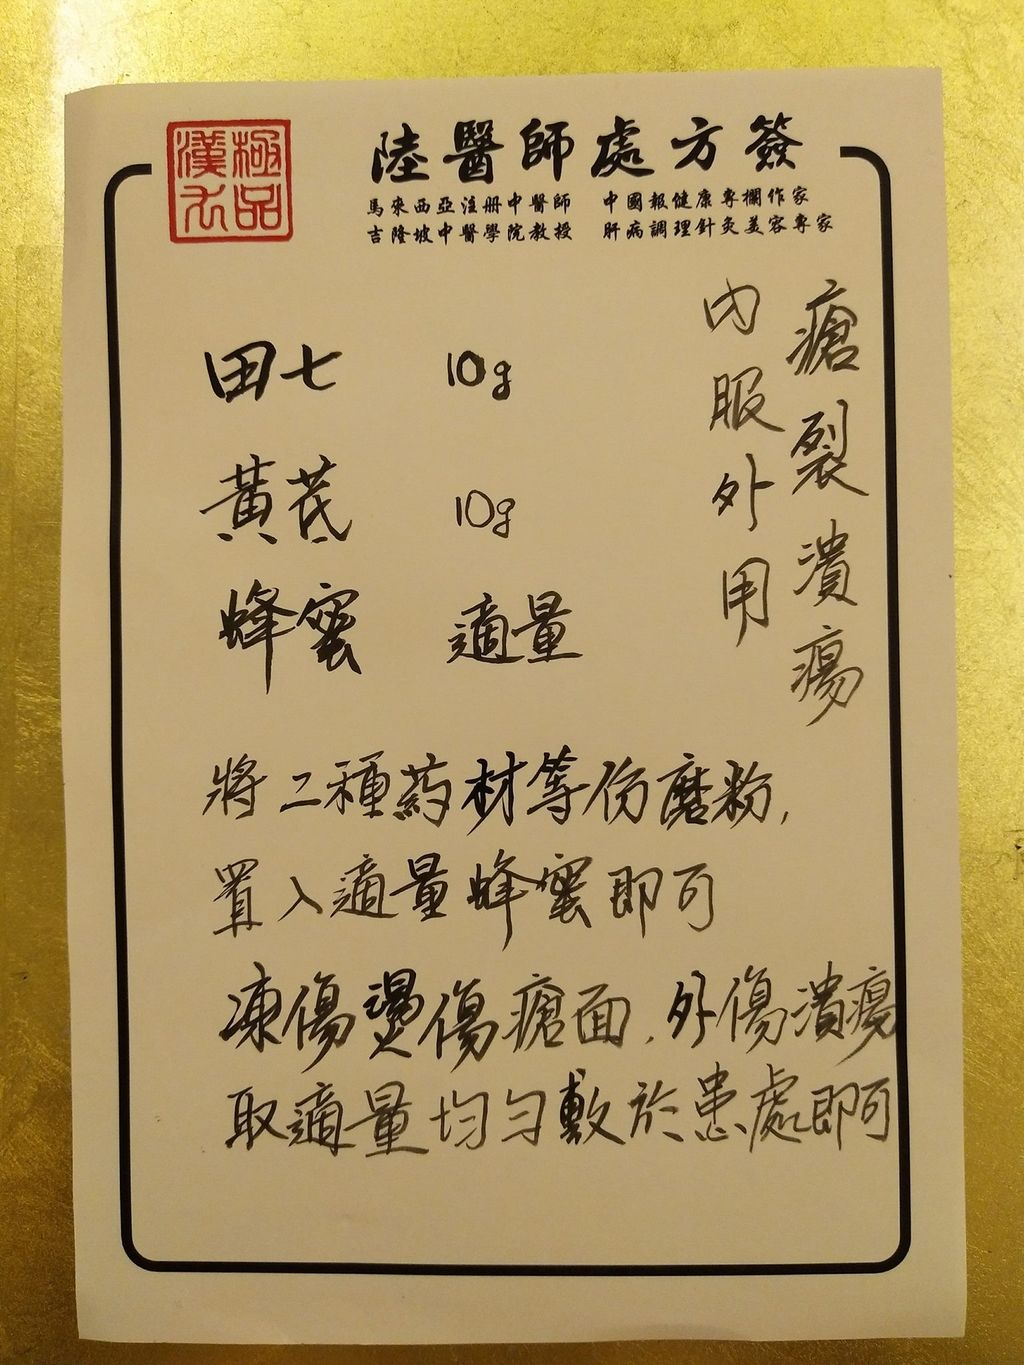 極品
漢方
陸醫師處方簽
馬來西亞注册中醫師 中國報健康專欄作家
吉隆坡中醫學院教授 肝病調理針灸美容專家
瘡裂潰瘍
內服外用
田七 10g
黃芪 10g
蜂蜜 適量
將二種药材等份磨粉,
置入適量蜂蜜即可
凍傷燙傷瘡面,外傷潰瘍
取適量均匀敷於患處即可